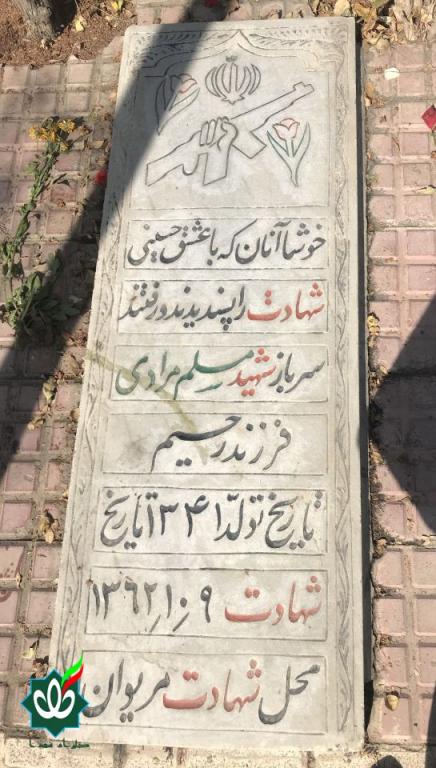 خوشا آنان که با عشق حسینی
شهادت را پسندیدند و رفتند
سرباز شهید مسلم مرادی
فرزند رحیم
تاریخ تولد ۱۳۴۱ تاریخ
شهادت ۱۳۶۲٫۱۰٫۹
محل شهادت مریوان